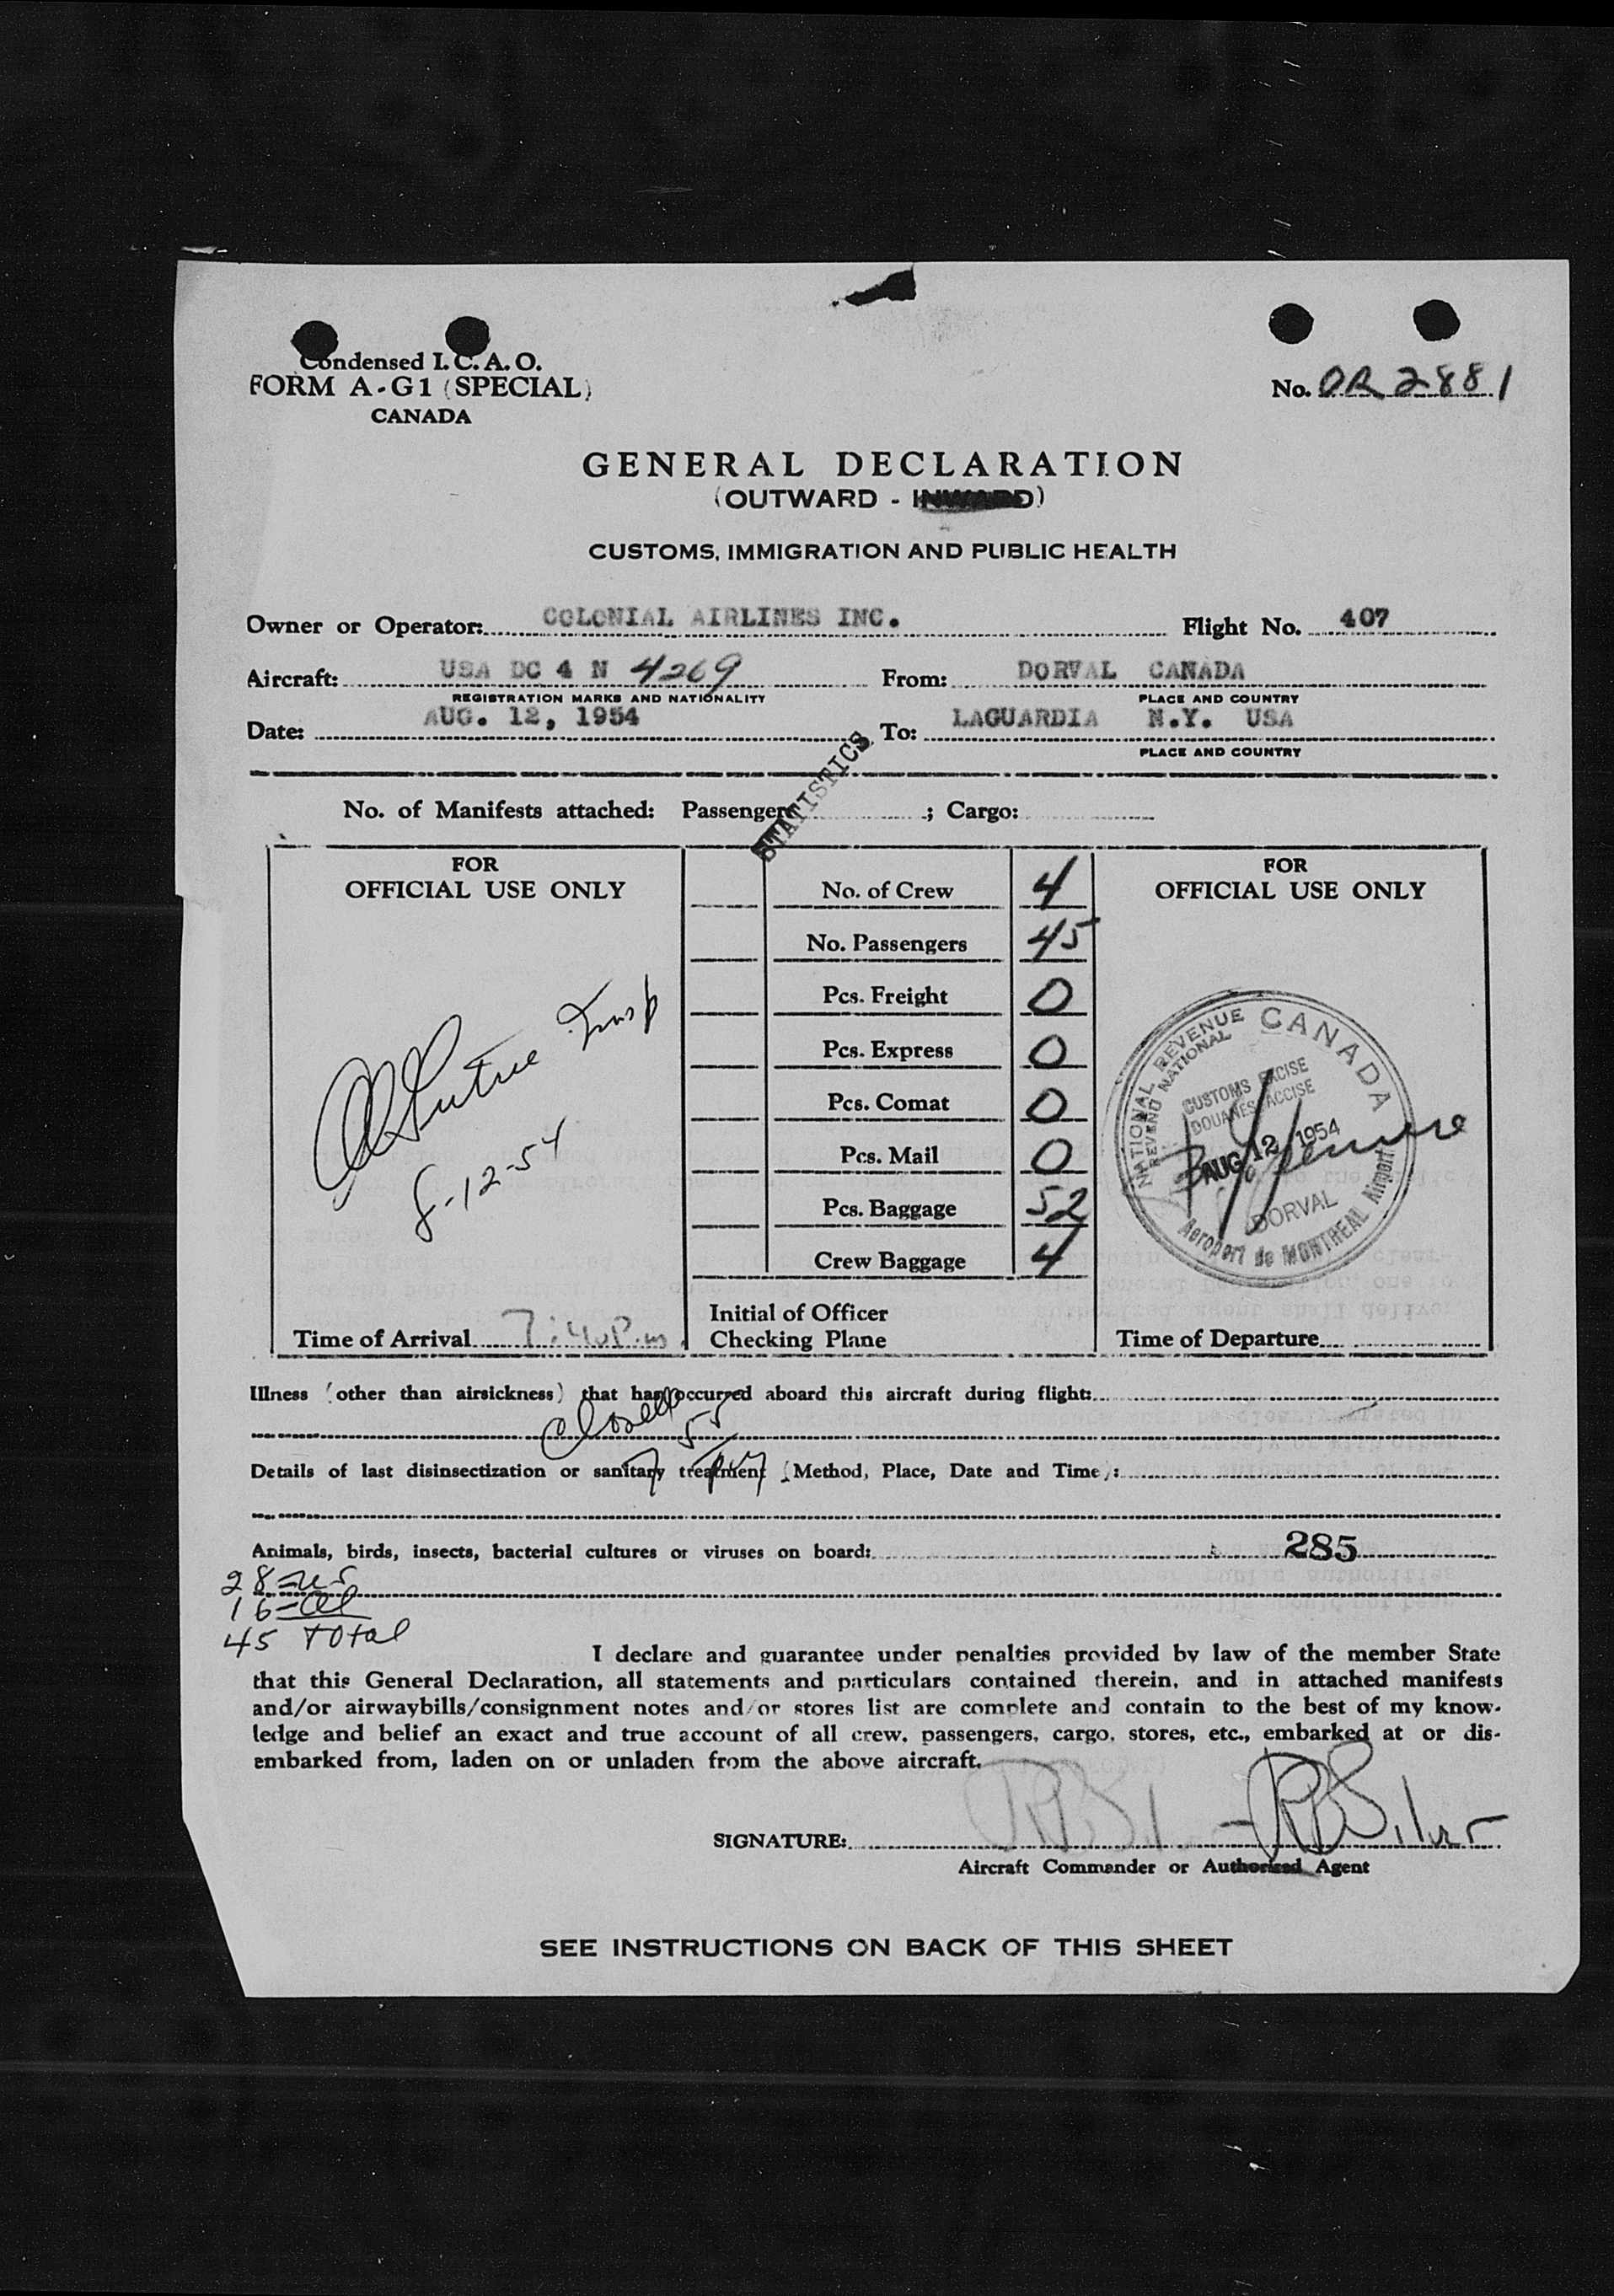 Condensed I. C. A. O.
FORM A-G1 (SPECIAL)
CANADA
No. OR 2881
GENERAL DECLARATION
(OUTWARD - INWARD)
CUSTOMS, IMMIGRATION AND PUBLIC HEALTH
Owner or Operator: COLONIAL AIRLINES INC. Flight No. 407
Aircraft: USA DC 4 N 4269 From: DORVAL CANADA
REGISTRATION MARKS AND NATIONALITY PLACE AND COUNTRY
Date: AUG. 12, 1954 To: LAGUARDIA N.Y. USA
PLACE AND COUNTRY
STATISTICS
No. of Manifests attached: Passenger ; Cargo:
FOR
OFFICIAL USE ONLY
Insp
8-12-54
Time of Arrival 7:40 P.m.
No. of Crew 4
No. Passengers 45
Pcs. Freight 0
Pcs. Express 0
Pcs. Comat 0
Pcs. Mail 0
Pcs. Baggage 52
Crew Baggage 4
Initial of Officer
Checking Plane
FOR
OFFICIAL USE ONLY
NATIONAL REVENUE CANADA
REVENU NATIONAL
CUSTOMS EXCISE
DOUANES ACCISE
AUG 12 1954
DORVAL
Aéroport de MONTREAL Airport
Time of Departure
Illness (other than airsickness) that has occurred aboard this aircraft during flight:
Details of last disinsectization or sanitary treatment (Method, Place, Date and Time):
Animals, birds, insects, bacterial cultures or viruses on board: 285
28 = US
16 = al
45 Total
I declare and guarantee under penalties provided by law of the member State
that this General Declaration, all statements and particulars contained therein, and in attached manifests
and/or airwaybills/consignment notes and/or stores list are complete and contain to the best of my know-
ledge and belief an exact and true account of all crew, passengers, cargo, stores, etc., embarked at or dis-
embarked from, laden on or unladen from the above aircraft.
SIGNATURE: RB Silver
Aircraft Commander or Authorized Agent
SEE INSTRUCTIONS ON BACK OF THIS SHEET